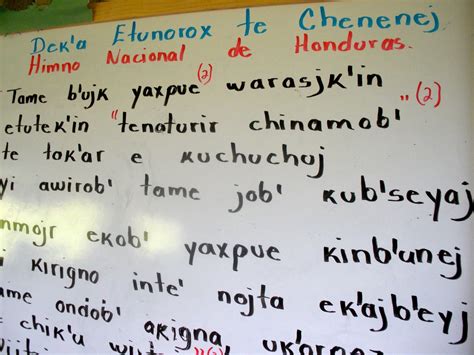 Dek'a Etunorox te Chenenej
Himno Nacional de Honduras.
Tame b'ujk yaxpue (2) warasjk'in
etutek'in "tenaturir chinamob' " (2)
te tok'ar e kuchuchuj
yi awirob' tame job' kub'seyaj
nmojr ekob' yaxpue kinb'unej
i kirigno inte' nojta ek'ajb'eyj
ame ondob' akigna, uk'
e chik'u